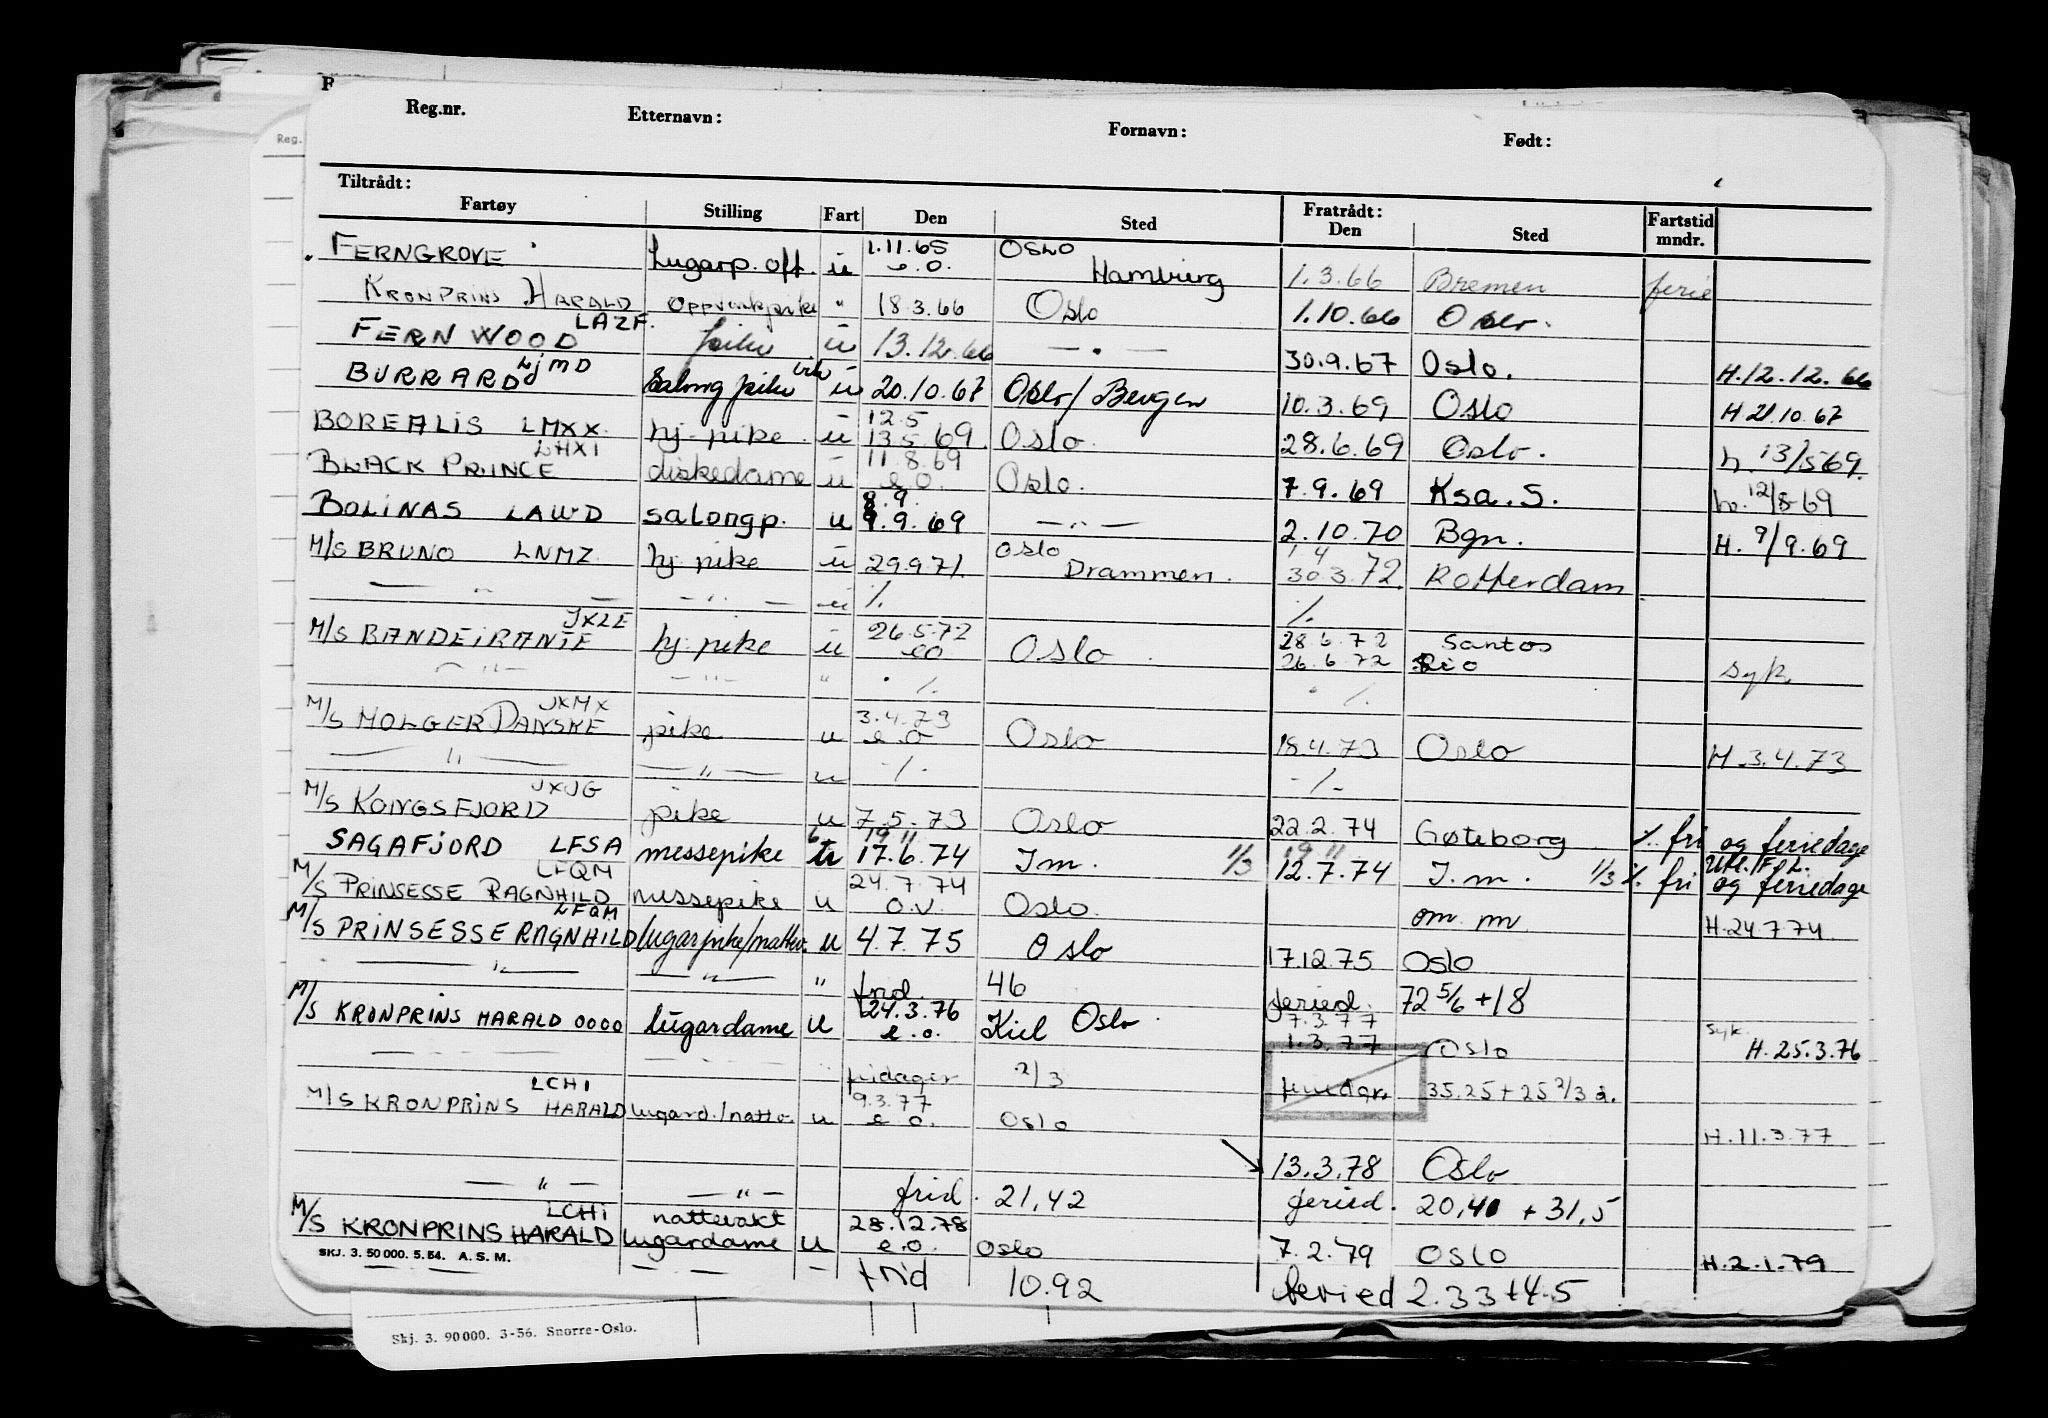 Reg.nr. Etternavn: Fornavn: Født:
Tiltrådt: Fratrådt:
Fartøy Stilling Fart Den Sted Den Sted Fartstid mndr.
FERNGROVE Lugarp. off. u 1.11.65 e.o. OSLO Hamburg 1.3.66 Bremen ferie
KRONPRINS HARALD " 18.3.66 Oslo 1.10.66 Oslo.
FERNWOOD LAZF. pike u 13.12.66 — " — 30.9.67 Oslo. H.12.12.66
BURRARD LJMD Salongpike u 20.10.67 Oslo/Bergen 10.3.69 Oslo H 21.10.67
BOREALIS LMXX hj. pike. u 12.5 13.5.69 Oslo. 28.6.69 Oslo. h. 13/5 69.
BLACK PRINCE LHXI diskedame u 11.8.69 e.o. Oslo. 7.9.69 Ksa. S. h. 12/8 69
BOLINAS LAWD salongp. u 8.9. 9.9.69 — " — 2.10.70 Bgn. H. 9/9.69
M/S BRUNO LNMZ hj. pike u 29.9.71. Oslo Drammen. 1 4 30.3.72. Rotterdam
— " — — " — u ./. ./.
M/S BANDEIRANTE JXZE hj. pike u 26.5.72 eo Oslo 28.6.72 Santos
26.6.72 Rio syk.
— " — — " — " ./. ./.
M/S HOLGER DANSKE JXMX pike u 3.4.73 e.o Oslo 18.4.73 Oslo H.3.4.73
— " — — " — u ./. ./.
M/S KONGSFJORD JXJG pike u 7.5.73 Oslo 22.2.74 Gøteborg ./. fri og feriedage
SAGAFJORD LFSA messepike tr 19 " 17.6.74 I m. 1/3 19 " 12.7.74 I. m. 1/3 ./. fri og feriedage
M/S PRINSESSE RAGNHILD LFQM messepike u 24.7.74 o.v. Oslo. om. m H.24.7.74
M/S PRINSESSE RAGNHILD LFQM lugarpike/nattev. u 4.7.75 Oslo 17.12.75 Oslo
— " — — " — " frid. 46 feried. 72 5/6 + 18
M/S KRONPRINS HARALD 0000 lugardame u 24.3.76 e.o. Kiel Oslo 7.3.77 1.3.77 Oslo syk. H.25.3.76
fridager 2/3 feriedgr. 35.25 + 25 2/3 d.
M/S KRONPRINS HARALD LCHI lugard./nattv. u 9.3.77 e.o. Oslo H.11.3.77
13.3.78 Oslo
— " — — " — frid. 21,42 feried. 20,41 + 31,5
M/S KRONPRINS HARALD LCHI nattevakt lugardame u 28.12.78 e.o. Oslo 7.2.79 Oslo H.2.1.79
SKJ. 3. 50 000. 5. 54. A. S. M.
— — — — — frid 10.92 feried 2.33 + 4.5
Skj. 3. 90 000. 3-56. Snorre-Oslo.